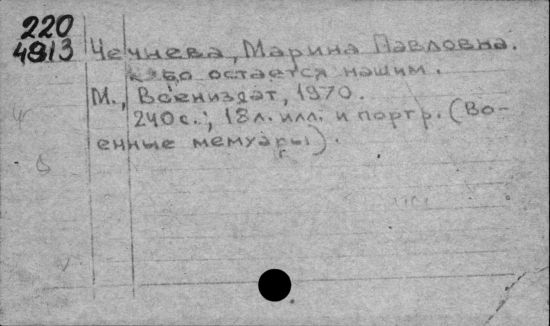 220
4813
Чечнева, Марина Павловна.
Небо остается нашим.
М., Воениздат, 1970.
240 с.; 18 л. илл. и портр. (Во-
енные мемуары).